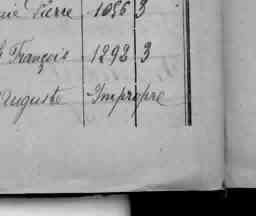 Pierre 1086 3
François 1293 3
Auguste Impropre